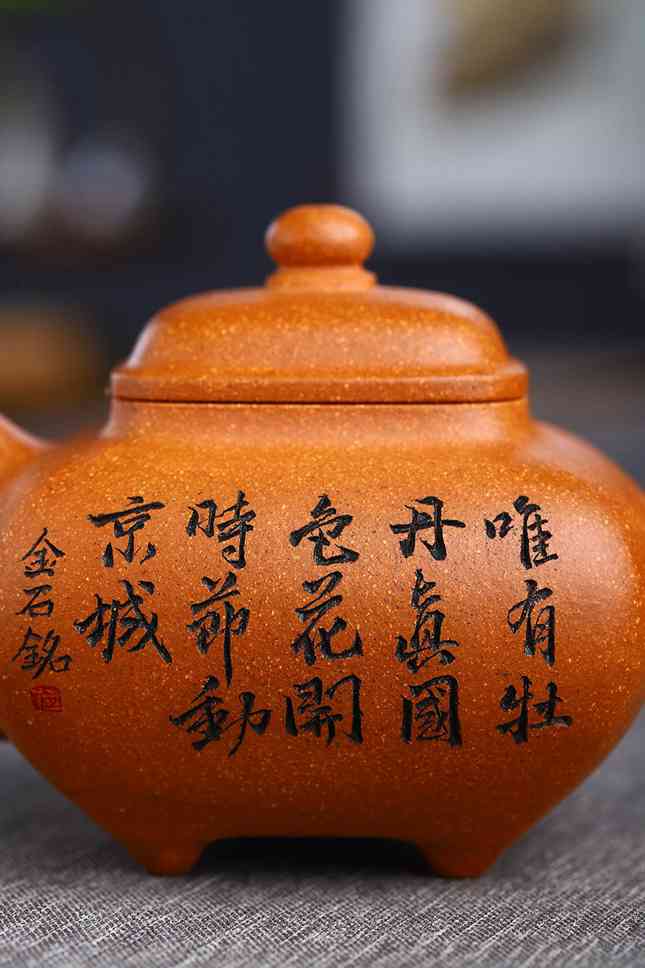 唯有牡
丹真國
色花開
時節動
京城
金石銘